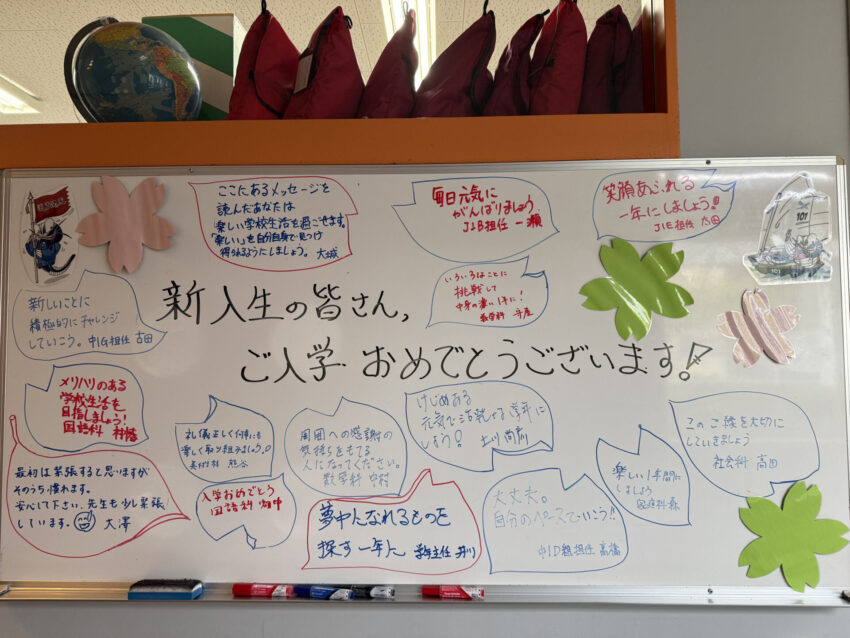 ここにあるメッセージを
読んだあなたは
楽しい学校生活を過ごせます。
「楽しい」を自分自身で見つけ
得られるようにしましょう。 大城
毎日元気に
がんばりましょう
J1B担任 一瀬
笑顔あふれる
一年にしましょう!!
J1E担任 太田
101
いろいろなことに
挑戦して
中身の濃い1年に!
新しいことに
積極的にチャレンジ
していこう。 中1G担任 吉田
新入生の皆さん,
ご入学 おめでとうございます!
メリハリのある
学校生活を
目指しましょう!
国語科 村橋
礼儀正しく何事にも
楽しく取り組みましょう。
熊谷
周囲への感謝の
気持ちをもてる
人になってください。
数学科 中村
けじめある
元気で活気ある学年に
しよう!
このご縁を大切に
していきましょう
社会科 高田
最初は緊張すると思いますが
そのうち慣れます。
安心して下さい、先生も少し緊張
しています。 大澤
入学おめでとう
国語科 畑中
夢中になれるものを
探す一年に 学年主任
大丈夫。
自分のペースでいこう!!
中1D組担任 高橋
楽しい1年間に
しましょう
家庭科 森